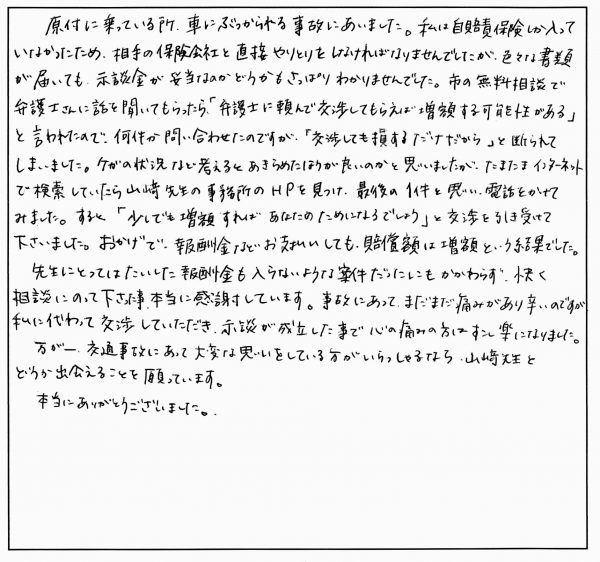 原付に乗っている所、車にぶつかられる事故にあいました。私は自賠責保険しか入って
いなかったため、相手の保険会社と直接やりとりをしなければなりませんでしたが、色々な書類
が届いても、示談金が妥当なのかどうかもさっぱりわかりませんでした。市の無料相談で
弁護士さんに話を聞いてもらったら「弁護士に頼んで交渉してもらえば増額する可能性がある」
と言われたので、何件か問い合わせたのですが、「交渉しても損するだけだから」と断られて
しまいました。ケガの状況など考えるとあきらめたほうが良いのかと思いましたが、たまたまインターネット
で検索していたら山﨑先生の事務所のHPを見つけ、最後の1件と思い、電話をかけて
みました。すると「少しでも増額すればあなたのためになるでしょう」と交渉を引き受けて
下さいました。おかげで、報酬金などお支払いしても、賠償額は増額という結果でした。
先生にとってはたいした報酬金も入らないような案件だったにもかかわらず、快く
相談にのって下さった事、本当に感謝しています。事故にあって、まだまだ痛みがあり辛いのですが
私に代わって交渉していただき、示談が成立した事で心の痛みの方はすこし楽になりました。
万が一、交通事故にあって大変な思いをしている方がいらっしゃるなら、山﨑先生と
どうか出会えることを願っています。
本当にありがとうございました。